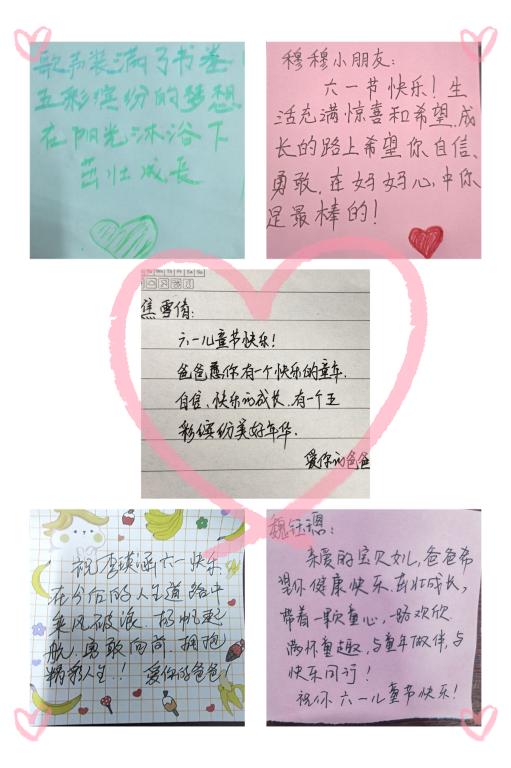 歌声装满了书卷
五彩缤纷的梦想
在阳光沐浴下
茁壮成长
穆穆小朋友：
六一节快乐！生
活充满惊喜和希望,成
长的路上希望你自信、
勇敢,在妈妈心中你
是最棒的！
焦雪倩：
六一儿童节快乐！
爸爸愿你有一个快乐的童年,
自信、快乐的成长,有一个五
彩缤纷美好年华.
爱你的爸爸
祝李瑛涵六一快乐
在今后的人生道路中
乘风破浪、扬帆起
航,勇敢向前,拥抱
精彩人生！！ 爱你的爸爸！
魏钰璁：
亲爱的宝贝女儿,爸爸希
望你健康快乐、茁壮成长,
带着一颗童心,一路欢欣
满怀童趣,与童年做伴,与
快乐同行！
祝你六一儿童节快乐！